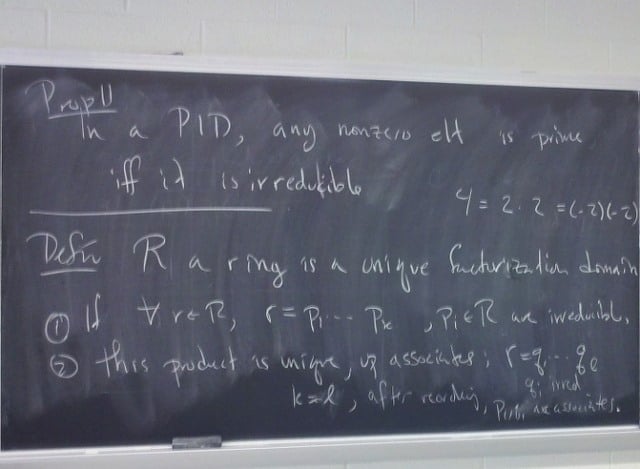 Prop 11
In a PID, any nonzero elt is prime
iff it is irreducible
4 = 2 · 2 = (-2)(-2)
Defn R a ring is a unique factorization domain
① If ∀ r ∈ R, r = P₁ ... Pₖ , Pᵢ ∈ R are irreducible,
② this product is unique, up associates; r = q₁ ... qₗ
qᵢ irred
k = l, after reordering, Pᵢ, qᵢ are associates.